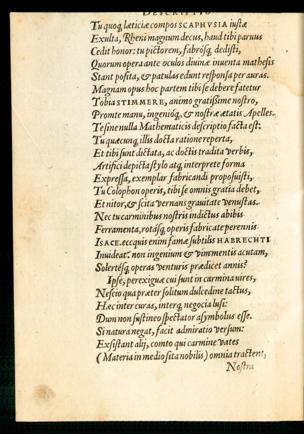 DESCRIPTIO
Tu quoq́ lætitiæ compos SCAPHVSIA iustæ
Exulta, Rheni magnum decus, haud tibi paruus
Cedit honor: tu pictorem, fabrósq́ dedisti,
Quorum opera ante oculos diuinæ inuenta mathesis
Stant posita, & patulas edunt responsa per auras.
Magnam opus hoc partem tibi se debere fatetur
Tobia STIMMERE, animo gratissime nostro,
Promte manu, ingenióq́, & nostræ ætatis Apelles.
Te sine nulla Mathematicis descriptio facta est:
Tu quæcunq́ illis docta ratione reperta,
Et tibi sunt dictata, ac doctis tradita verbis,
Artifici depicta stylo atq́ interprete forma
Expressa, exemplar fabricandi proposuisti,
Tu Colophon operis, tibi se omnis gratia debet,
Et nitor, & scita vernans grauitate venustas.
Nec tu carminibus nostris indictus abibis
Ferramenta, rotásq́ operis fabricate perennis
ISACE. ecquis enim famæ subtilis HABRECHTI
Inuideat? non ingenium & vim mentis acutam,
Solertésq́ operas venturis prædicet annis?
Ipse, perexiguæ cui sunt in carmina vires,
Nescio qua præter solitum dulcedine tactus,
Hæc inter curas, interq́ negocia lusi:
Dum non sustineo spectator asymbolus esse.
Si natura negat, facit admiratio versum:
Exsistant alij, comto qui carmine vates
(Materia in medio sita nobilis) omnia tractent,
Nostra